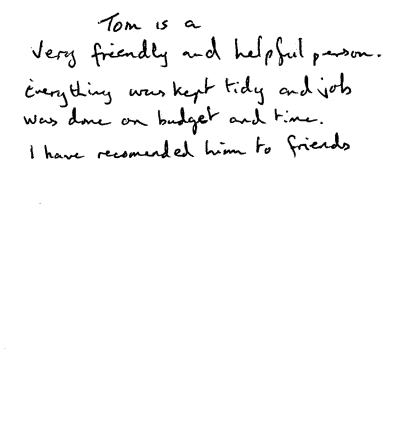 Tom is a
Very friendly and helpful person.
Everything was kept tidy and job
was done on budget and time.
I have recomended him to friends